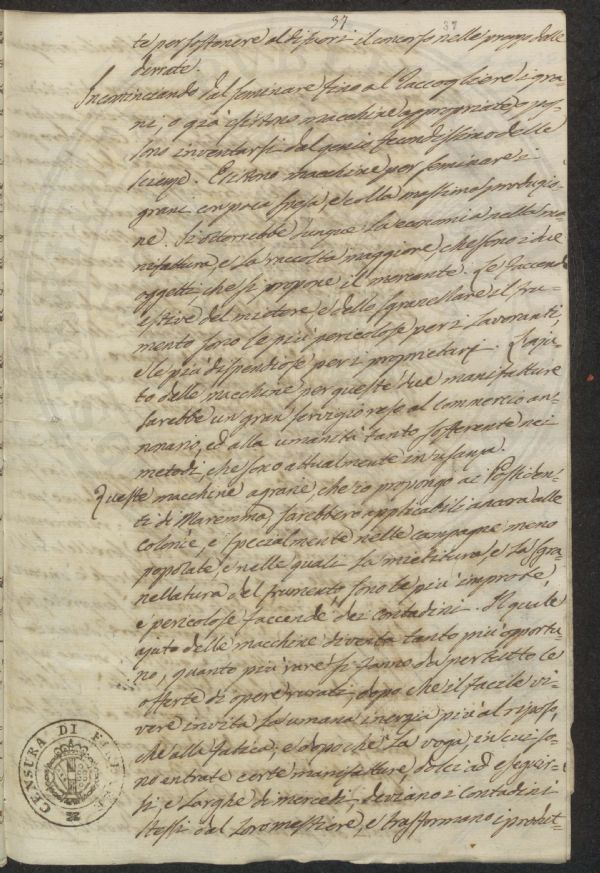 37 37
te per sostenere al di fuori il concorso nelle prezzo delle
derrate.
Incominciando dal seminare fino al raccogliere i gra-
ni, o già esistono macchine appropriate, o pos-
sono inventarsi dal genio fecondissimo delle
scienze. Esistono macchine per seminare i
grani con poca spesa, e colla massima produzio-
ne. Si otterrebbe dunque la economia nella ma-
nifattura, e la raccolta maggiore, che sono i due
oggetti, che si propone il mercante. Le faccende
estive del mietere, e dello sgranellare il fru-
mento sono le più pericolose per i lavoranti,
e le più dispendiose per i proprietarj. L'aju-
to delle macchine per queste due manifatture
sarebbe un gran servigio reso al commercio an-
nonario, ed alla umanità tanto sofferente nei
metodi, che sono attualmente in usanza.
Queste macchine agrarie, che io propongo ai Possiden-
ti di Maremma, sarebbero applicabili ancora alle
Colonìe, e specialmente nelle campagne meno
popolate, e nelle quali la mietitura, e la sgra-
nellatura del frumento sono le più improbe,
e pericolose faccende dei Contadini. Il quale
ajuto delle macchine diventa tanto più opportu-
no, quanto più rare si fanno da per tutto le
offerte di opere rurali, dopo che il facile vi-
vere invita la umana inergia più al riposo,
che alla fatica; e dopo che la voga, in cui so-
no entrate certe manifatture dolci ad eseguir-
si, e larghe di mercedi, deviano i Contadini
stessi dal loro mestiere, e trasformano i produt-
CENSURA DI FIRENZE